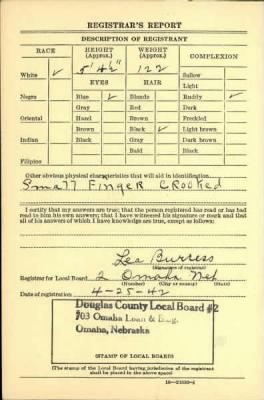 REGISTRAR'S REPORT
DESCRIPTION OF REGISTRANT
RACE HEIGHT (Approx.) WEIGHT (Approx.) COMPLEXION
White ✓ 5' 4½" 122 Sallow
EYES HAIR Light
Negro Blue ✓ Blonde Ruddy ✓
Gray Red Dark
Oriental Hazel Brown Freckled
Brown Black ✓ Light brown
Indian Black Gray Dark brown
Bald Black
Filipino
Other obvious physical characteristics that will aid in identification
Small Finger Crooked
I certify that my answers are true; that the person registered has read or has had
read to him his own answers; that I have witnessed his signature or mark and that
all of his answers of which I have knowledge are true, except as follows:
Lea Burgess
(Signature of registrar)
Registrar for Local Board 2 Omaha Neb
(Number) (City or county) (State)
Date of registration 4-25-42
Douglas County Local Board #2
703 Omaha Loan & Bldg.
Omaha, Nebraska
(STAMP OF LOCAL BOARD)
(The stamp of the Local Board having jurisdiction of the registrant
shall be placed in the above space)